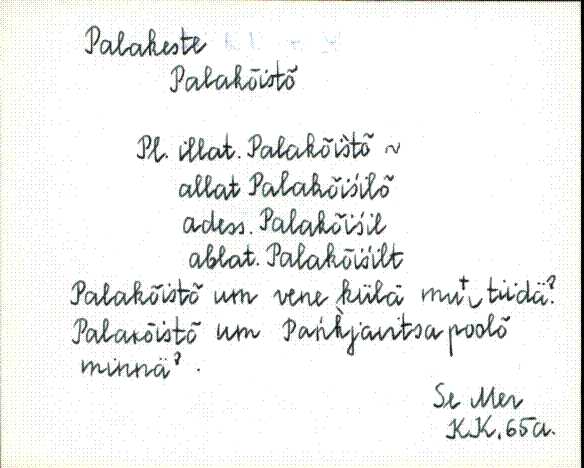 Palakeste
Palakõistõ
Pl. illat. Palakõìstõ ~
allat Palakõiśilõ
adess. Palakõiśil
ablat. Palakõiśilt
Palakõistõ um vene külä muᵗ‿tiidäˀ.
Palakõistõ um Pańkjavitsa poolõ
minnäˀ.
Se Mer
KK, 65a.